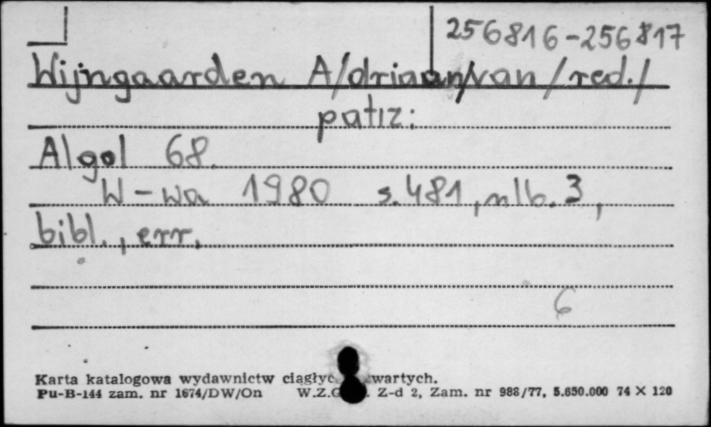 256816-256817
Wijngaarden A/driaan/van /red./
patrz:
Algol 68.
W-wa 1980 s.481, nlb. 3,
bibl., err.
6
Karta katalogowa wydawnictw wartych.
Pu-B-144 zam. nr 1674/DW/On W.Z.G. Z-d 2, Zam. nr 988/77, 5.650.000 74 × 120